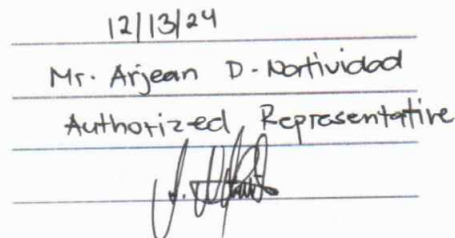 12/13/24
Mr. Arjean D. Nortividad
Authorized Representative